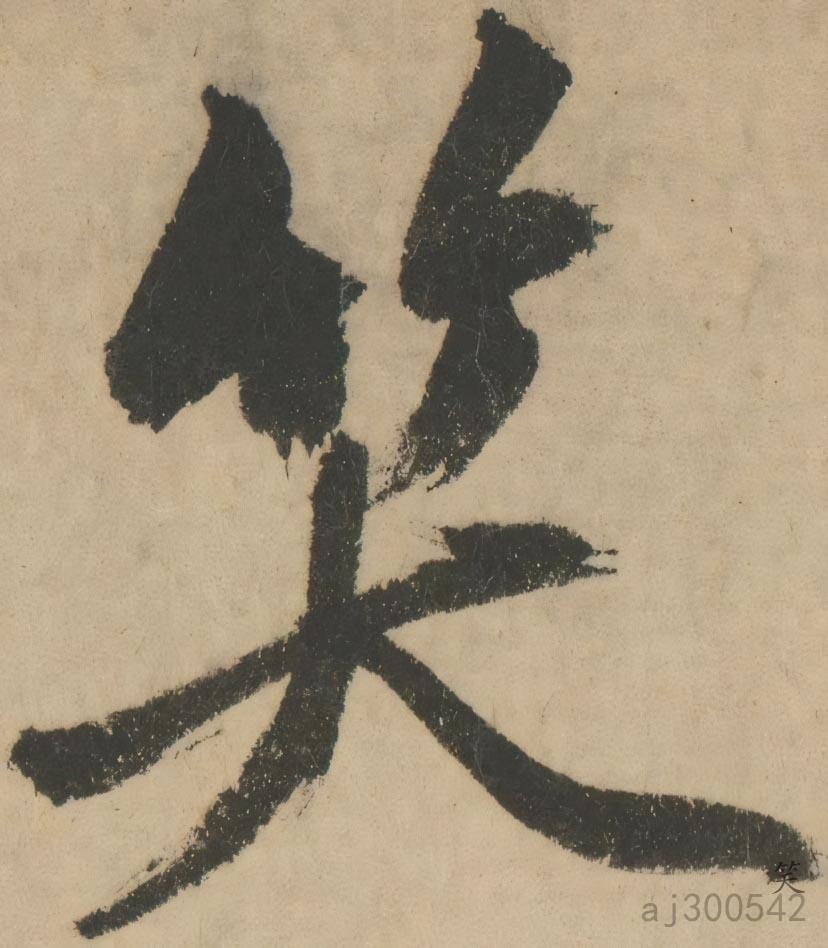 笑
笑
aj300542